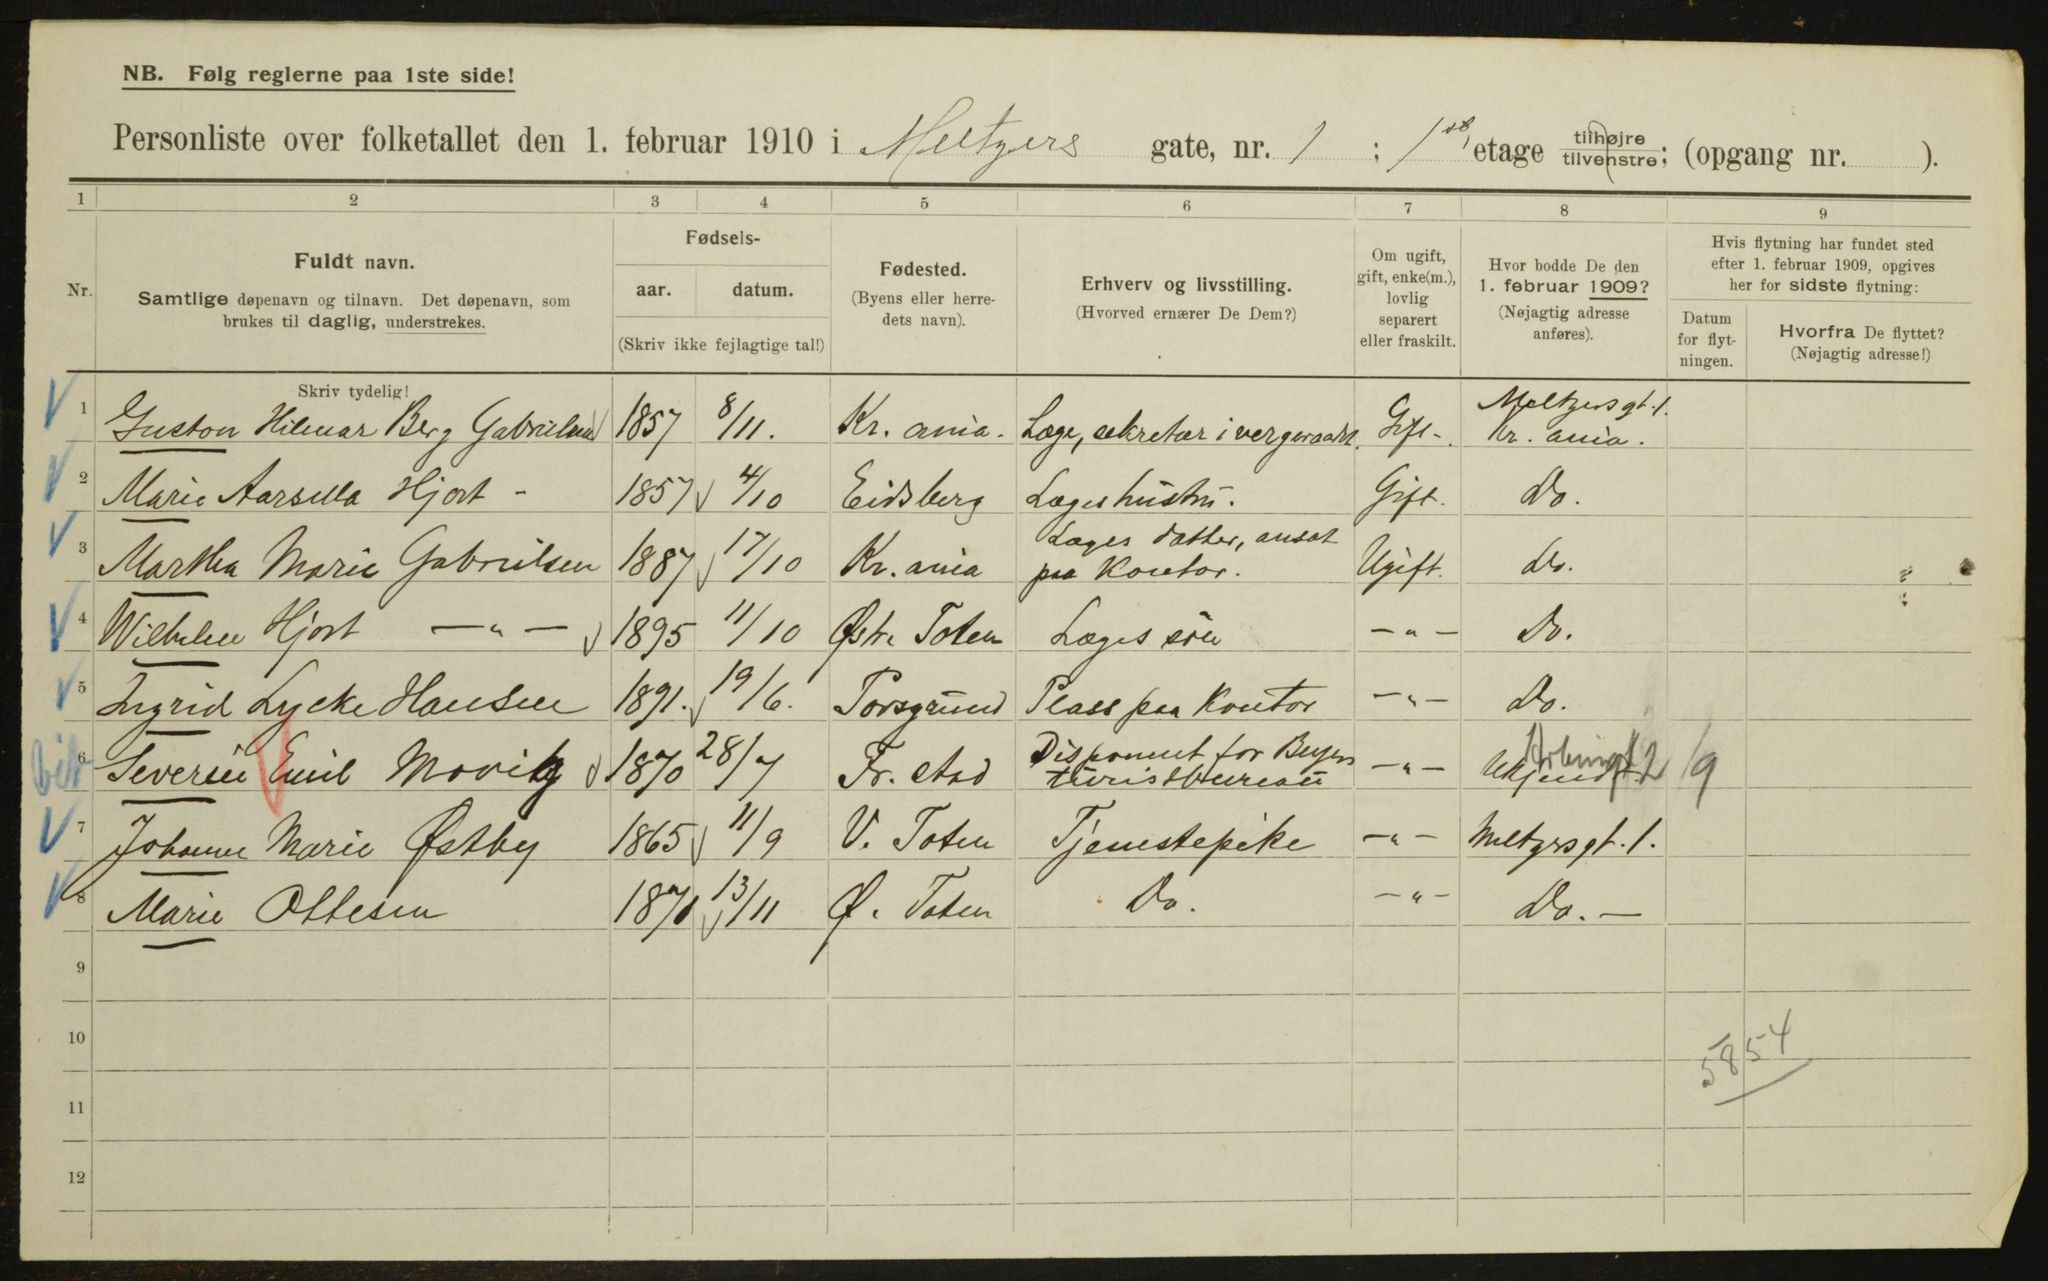 NB. Følg reglerne paa 1ste side!
Personliste over folketallet den 1. februar 1910 i Meltzers gate, nr. 1 ; 1ste etage tilhøjre tilvenstre; (opgang nr. ).
1 2 3 4 5 6 7 8 9
Nr.
Fuldt navn.
Samtlige døpenavn og tilnavn. Det døpenavn, som
brukes til daglig, understrekes.
Skriv tydelig!
Fødsels-
aar. datum.
(Skriv ikke fejlagtige tal!)
Fødested.
(Byens eller herre-
dets navn).
Erhverv og livsstilling.
(Hvorved ernærer De Dem?)
Om ugift,
gift, enke(m.),
lovlig
separert
eller fraskilt.
Hvor bodde De den
1. februar 1909?
(Nøjagtig adresse
anføres).
Hvis flytning har fundet sted
efter 1. februar 1909, opgives
her for sidste flytning:
Datum
for flyt-
ningen.
Hvorfra De flyttet?
(Nøjagtig adresse!)
1 Gustav Hilmar Berg Gabrielsen 1857 8/11. Kr. ania. Læge, sekretær i vergeraadet. Gift. Meltzersgt. 1. Kr. ania.
2 Marie Aarsilla Hjort - 1857 4/10 Eidsberg Lægeshustru. Gift. Do.
3 Martha Marie Gabrielsen 1887 17/10 Kr. ania Læges datter, ansat paa Kontor. Ugift. Do.
4 Wilhelm Hjort —"— 1895 11/10 Østre Toten Læges søn —"— Do.
5 Ingrid Lycke Hansen 1891. 19/6. Porsgrund Plass paa Kontor —"— Do.
6 Severin Emil Movitz 1870 28/7 Fr. stad Disponent for Beyers turistbureau —"— Ukjendt 2 /9
7 Johanne Marie Østby 1865 11/9 V. Toten Tjenestepike —"— Meltzersgt. 1.
8 Marie Ottesen 1870 13/11 Ø. Toten Do. —"— Do. —
9
10
11
12
5854